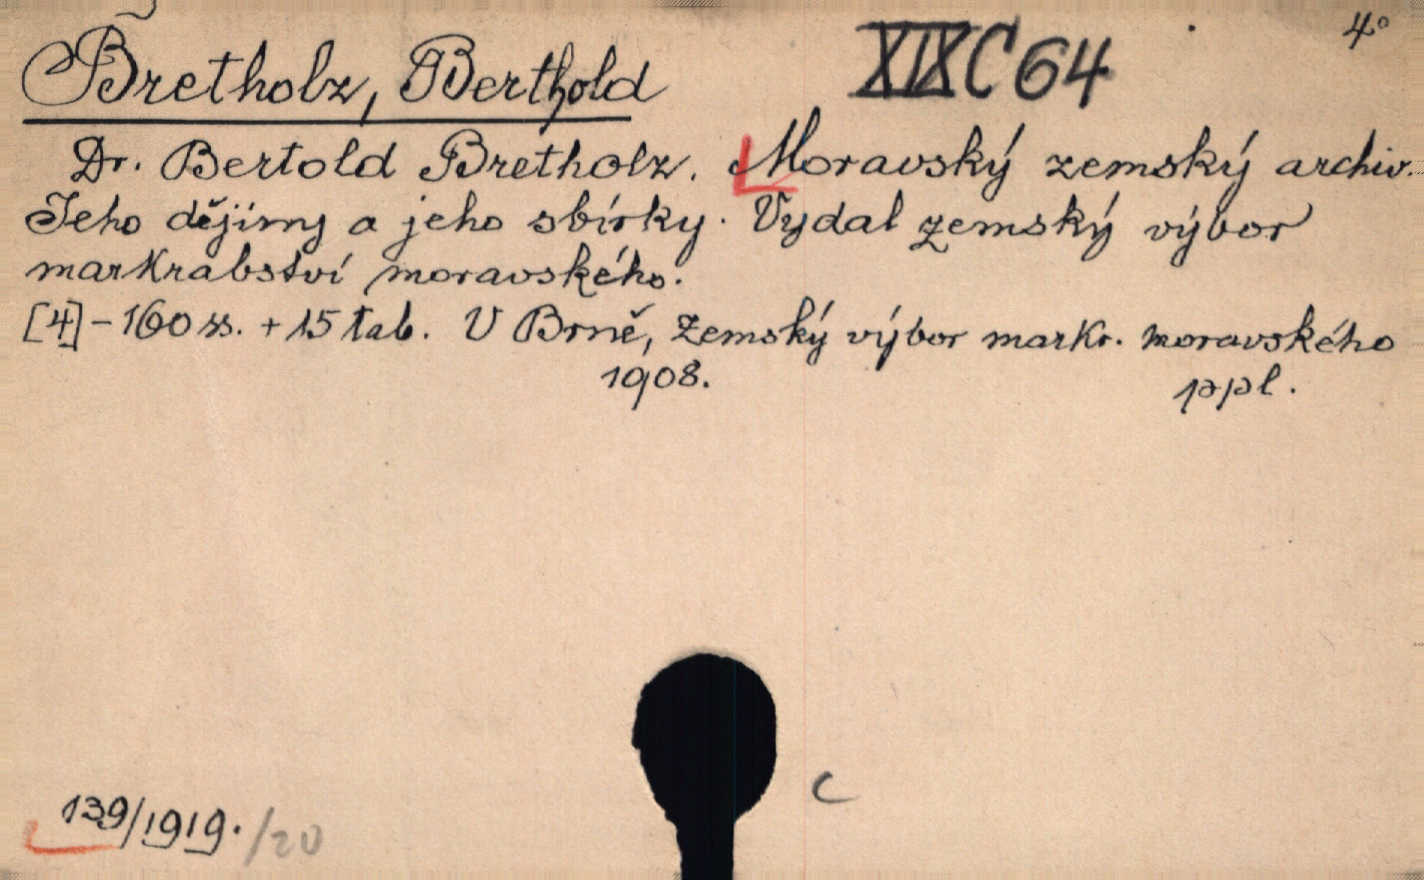 Bretholz, Berthold
XIX C 64
4°
Dr. Bertold Bretholz. Moravský zemský archiv.
Jeho dějiny a jeho sbírky. Vydal zemský výbor
markrabství moravského.
[4]-160 ss. + 15 tab. V Brně, Zemský výbor markr. moravského
1908. ppl.
C
139/1919. /20